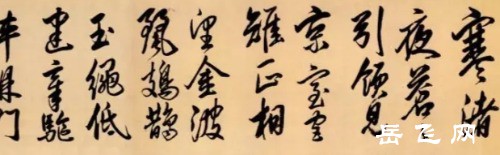 寒渚
夜蒼々
引領見
京室宮
雉正相
望金波
麗鳷鵲
玉繩低
建章驅
車鼎門
岳飞网